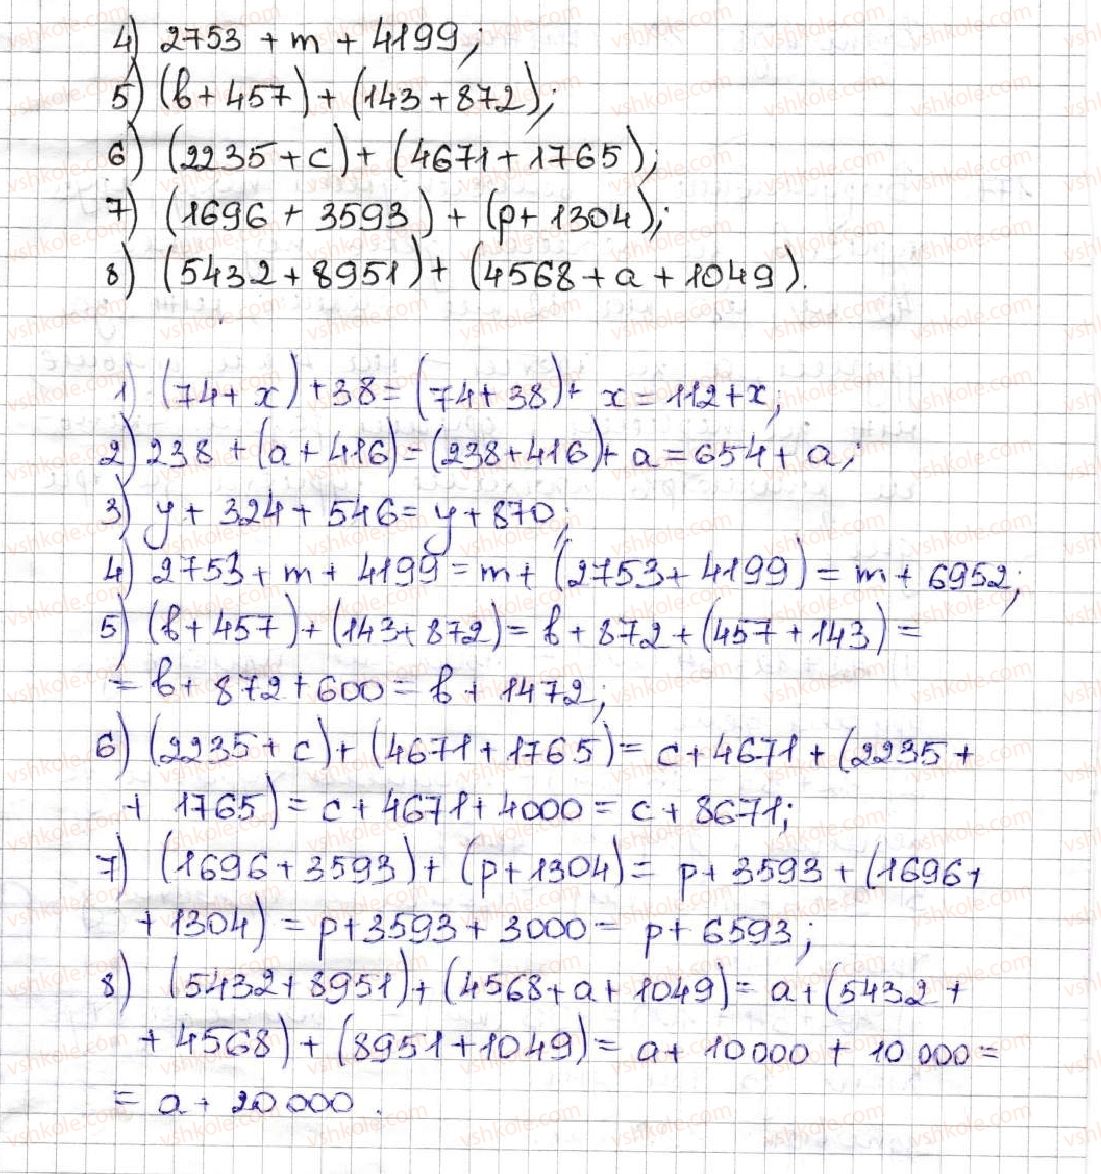 4) 2753 + m + 4199;
5) (b + 457) + (143 + 872);
6) (2235 + c) + (4671 + 1765);
7) (1696 + 3593) + (p + 1304);
8) (5432 + 8951) + (4568 + a + 1049).
1) (74 + x) + 38 = (74 + 38) + x = 112 + x;
2) 238 + (a + 416) = (238 + 416) + a = 654 + a;
3) y + 324 + 546 = y + 870;
4) 2753 + m + 4199 = m + (2753 + 4199) = m + 6952;
5) (b + 457) + (143 + 872) = b + 872 + (457 + 143) =
= b + 872 + 600 = b + 1472;
6) (2235 + c) + (4671 + 1765) = c + 4671 + (2235 +
+ 1765) = c + 4671 + 4000 = c + 8671;
7) (1696 + 3593) + (p + 1304) = p + 3593 + (1696 +
+ 1304) = p + 3593 + 3000 = p + 6593;
8) (5432 + 8951) + (4568 + a + 1049) = a + (5432 +
+ 4568) + (8951 + 1049) = a + 10 000 + 10 000 =
= a + 20 000.
vshkole.com